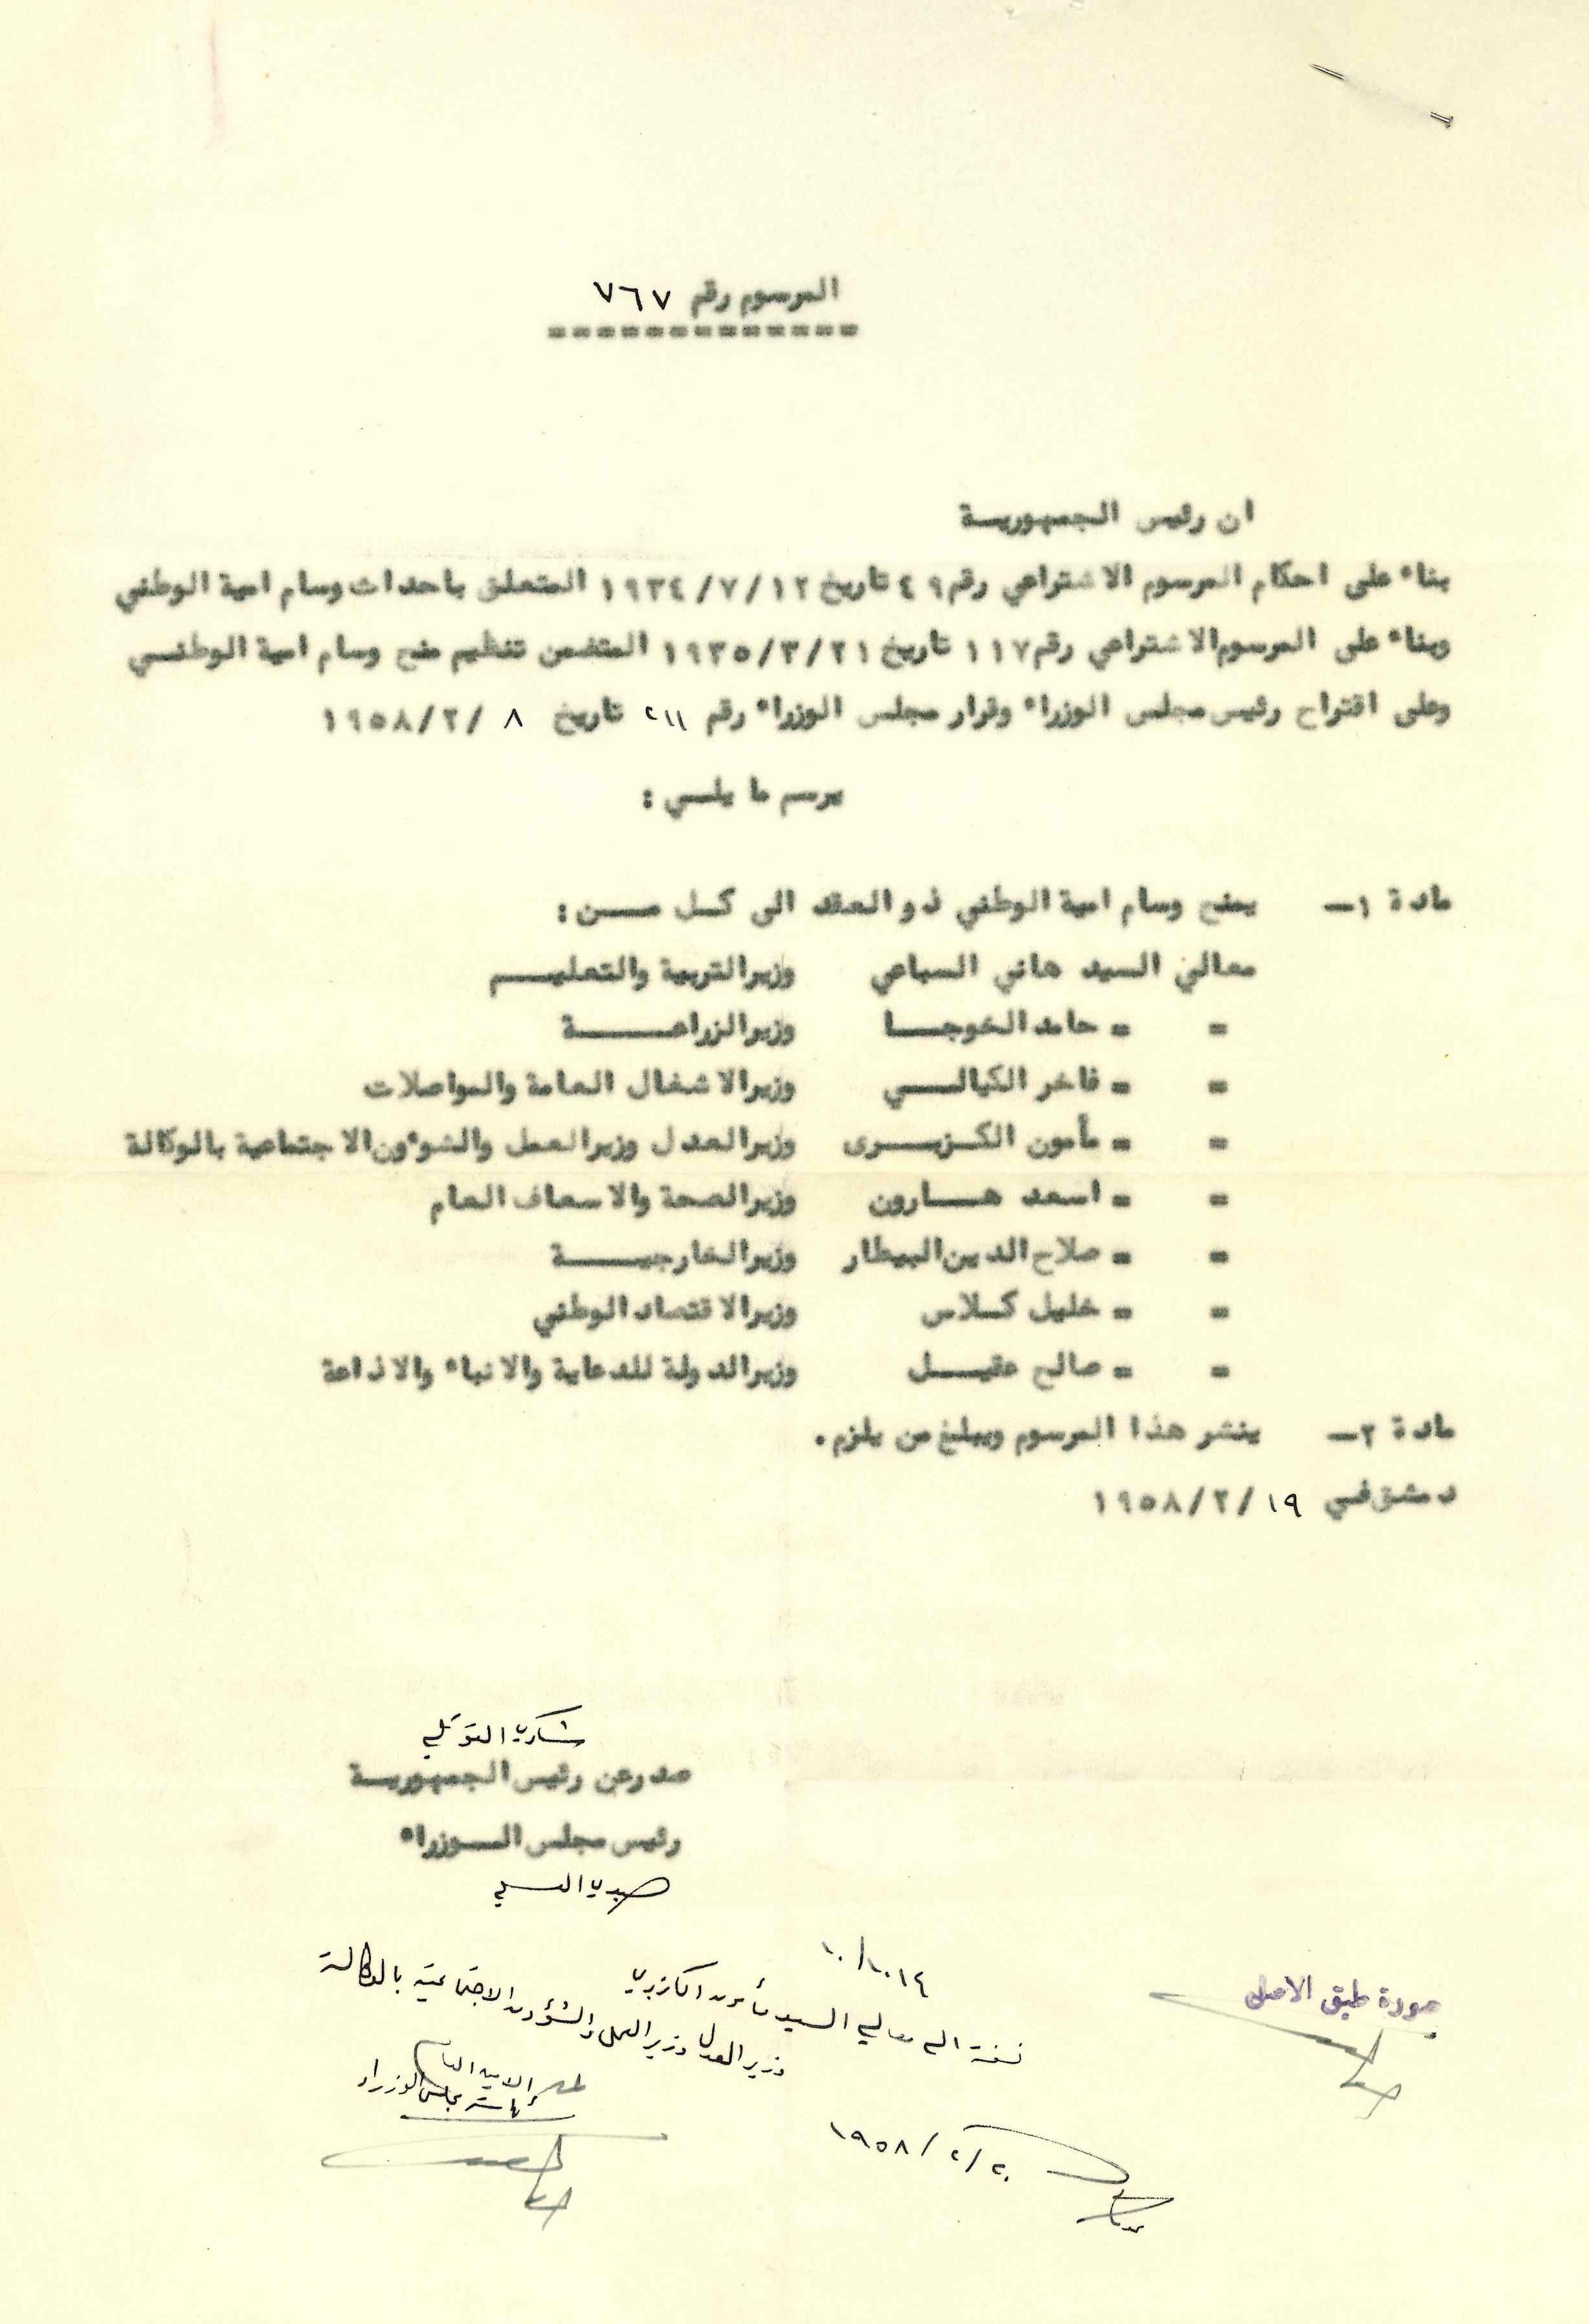 المرسوم رقم ٧٦٧
ان رئيس الجمهوريـة
بناء على احكام المرسوم الاشتراعي رقم ٤٩ تاريخ ١٩٣٤/٧/١٢ المتعلق باحداث وسام امية الوطني
وبناء على المرسوم الاشتراعي رقم ١١٧ تاريخ ١٩٣٥/٣/٢١ المتضمن تنظيم منح وسام امية الوطنـي
وعلى اقتراح رئيس مجلس الوزراء وقرار مجلس الوزراء رقم ٢١١ تاريخ ٨ /١٩٥٨/٢
يرسم ما يلـي :
مادة ١ـ يمنح وسام امية الوطني ذو العقد الى كـل مـن :
معالي السيد هاني السباعي وزير التربية والتعليـم
= = حامد الخوجـا وزير الزراعـة
= = فاخر الكيالـي وزير الاشغال العامة والمواصلات
= = مأمون الكـزبـرى وزير العدل وزير العمل والشوءون الاجتماعية بالوكالة
= = اسعد هـارون وزير الصحة والاسعاف العام
= = صلاح الدين البيطار وزير الخارجيـة
= = خليل كـلاس وزير الاقتصاد الوطني
= = صالح عقيـل وزير الدولة للدعاية والانباء والاذاعة
مادة ٢ـ ينشر هذا المرسوم ويبلغ من يلزم .
دمشق فـي ١٩/ ١٩٥٨/٢
شكري القوتلي
صدر عن رئيس الجمهوريـة
رئيس مجلس الـوزراء
صبري العسلي
صورة طبق الاصل
نسخة الى معالي السيد مأمون الكزبري
وزير العدل وزير العمل والشؤون الاجتماعية بالوكالة
الامين العام
لرئاسة مجلس الوزراء
١٩٥٨/٢/٢٠